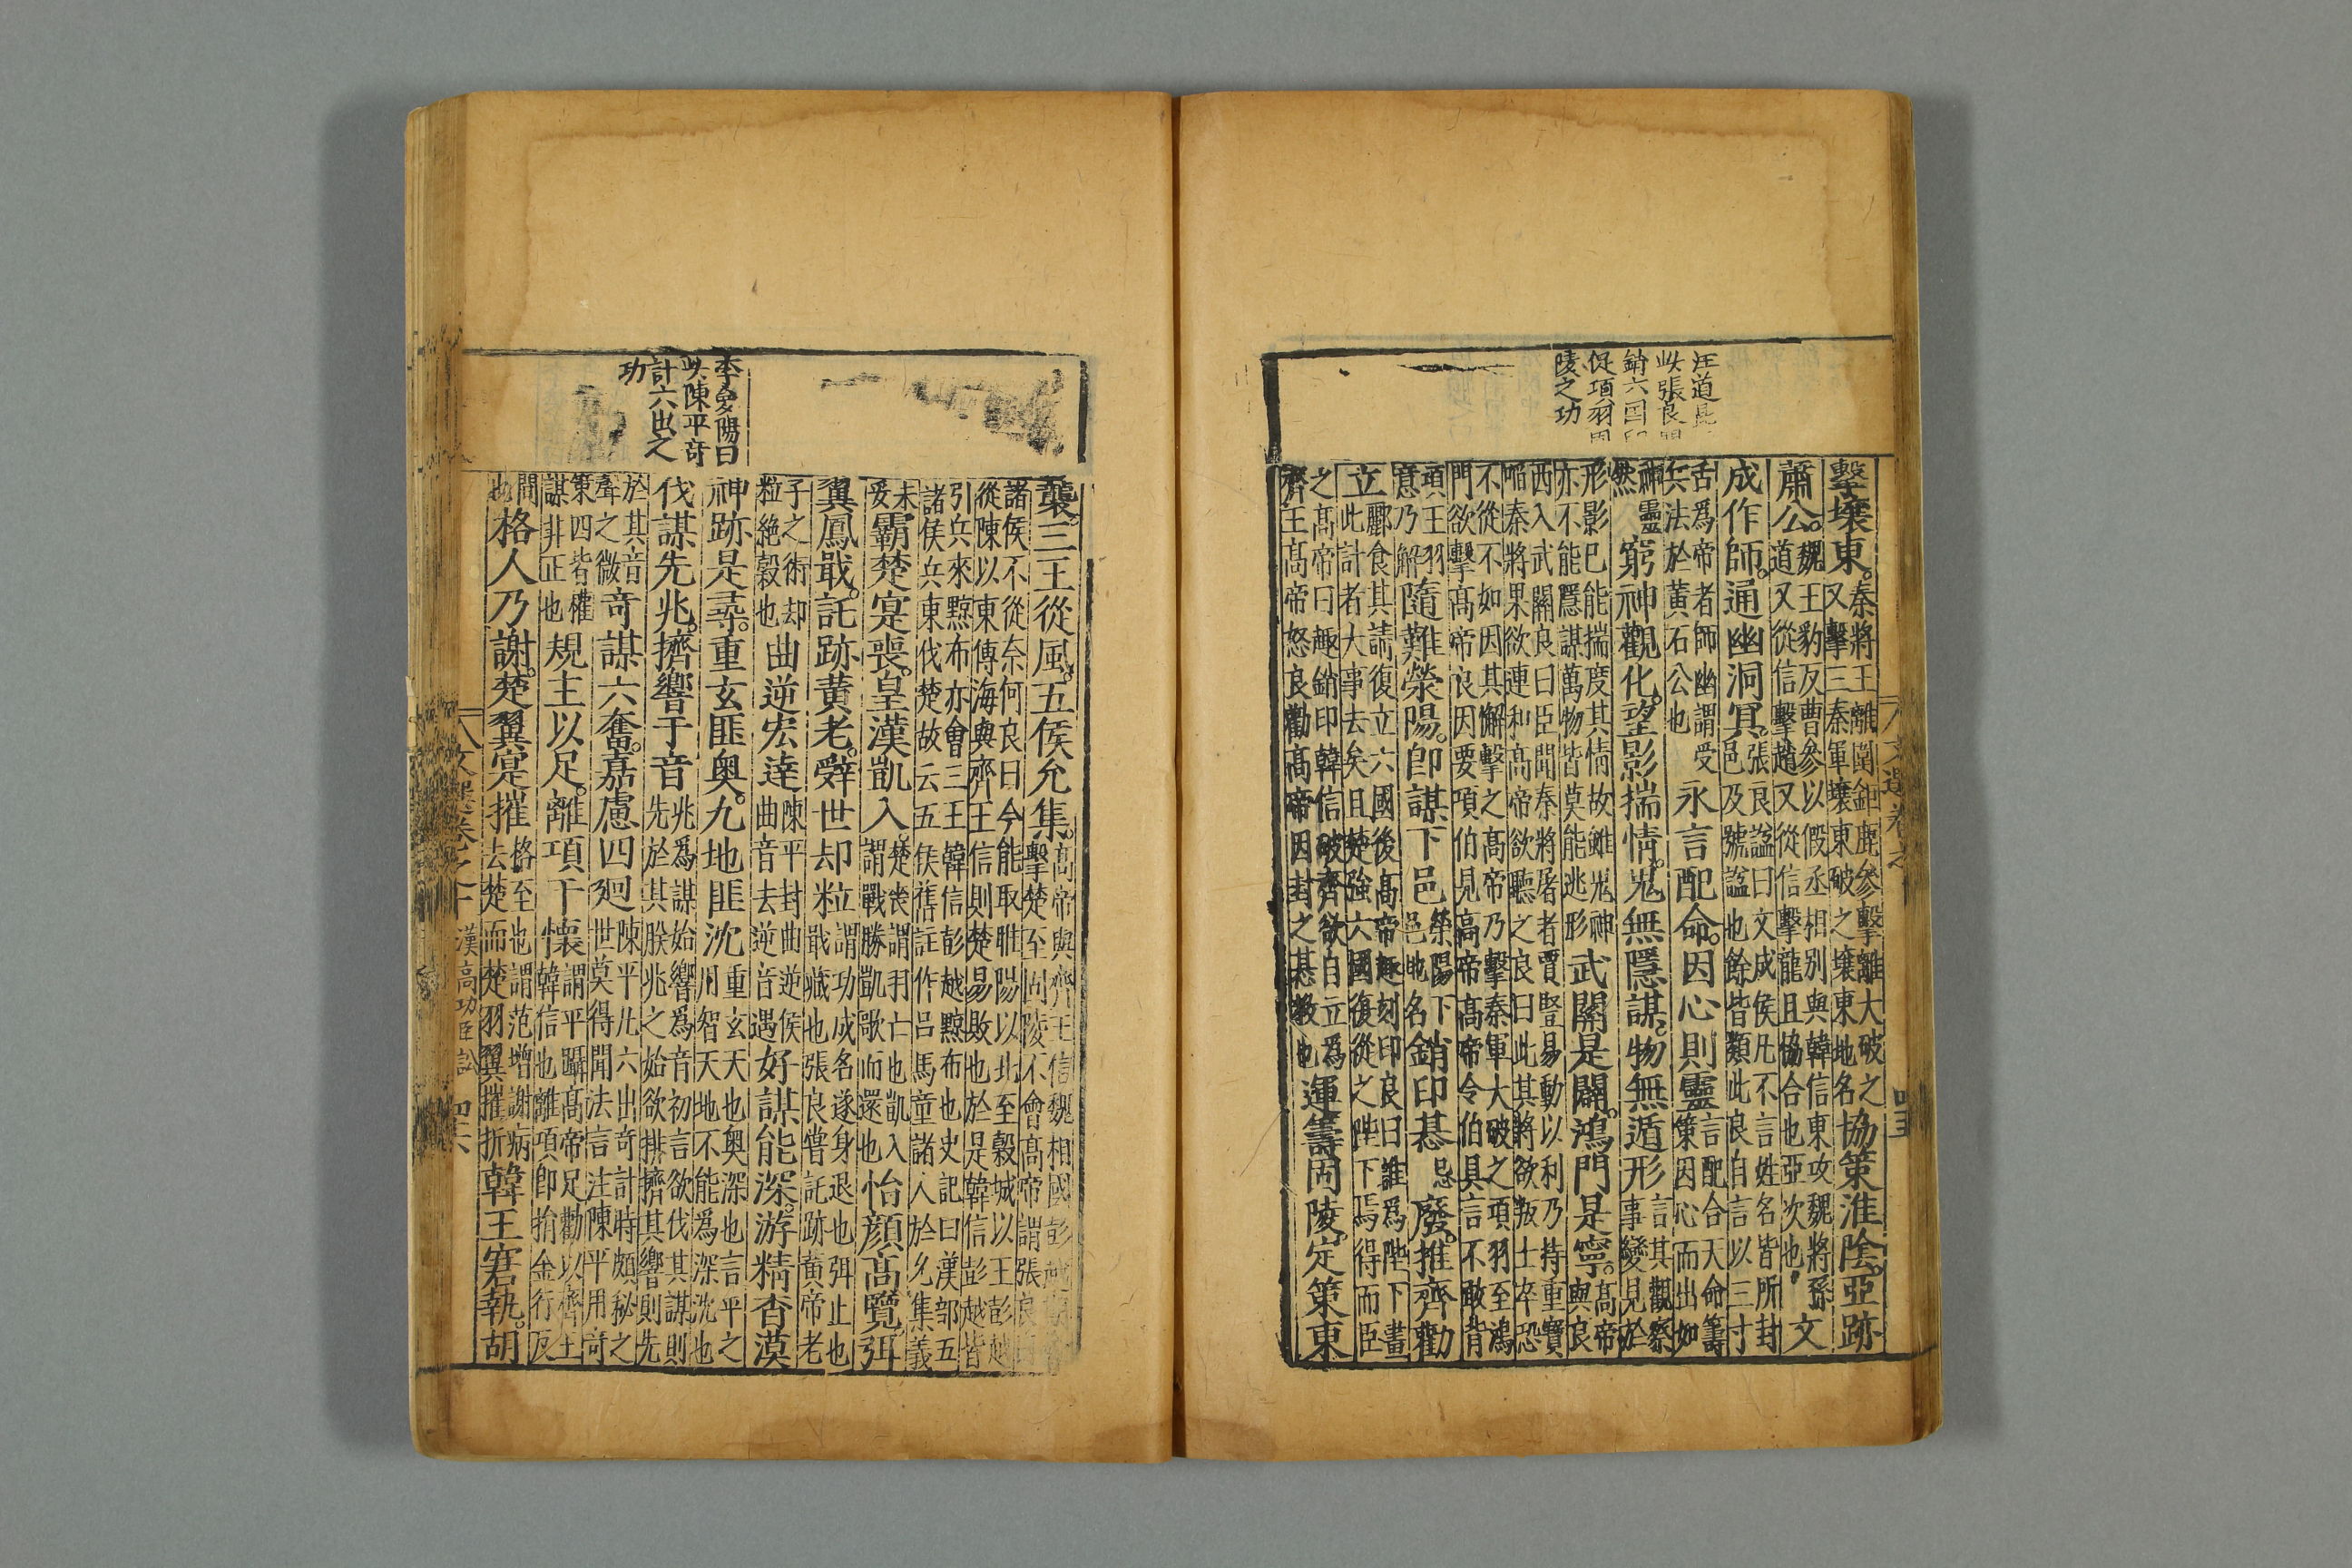 汪道昆
此張良
銷六國印
促項羽固
陵之功
擊壤東。秦將王離圍鉅鹿參擊離大破之
又擊三秦軍壤東破之壤東地名協策淮陰。亞跡
蕭公。魏王豹反曹參以假丞相別與韓信東攻魏將孫
道又從信擊趙又從信擊龍且協合也亞次也文
成作師。通幽洞冥。張良諡曰文成侯凡不言姓名皆所封
邑及號諡也餘皆類此良自言以三寸
舌爲帝者師幽謂受
兵法於黃石公也永言配命。因心則靈言配合天命籌
策因心而出如
神靈
然窮神觀化。望影揣情。鬼無隱謀。物無遁形言其觀察
事變見於
形影已能揣度其情故雖鬼神
亦不能隱謀萬物皆莫能逃形武關是闢。鴻門是寧。高帝
與良
西入武關良曰臣聞秦將屠者賈豎易動以利乃持重寶
啗秦將果欲連利高帝欲聽之良曰此其將欲叛士卒恐
不從不如因其懈擊之高帝乃擊秦軍大破之項羽至鴻
門欲擊高帝良因要項伯見高帝高帝令伯具言不敢背
項王羽
意乃解隨難滎陽。卽謀下邑滎陽下
邑地名銷印惎忌廢。推齊勸
立酈食其請復立六國後高帝趣刻印良曰誰爲陛下畫
此計者大事去矣且楚強六國復從之陛下焉得而臣
之高帝曰趣銷印韓信破齊欲自立爲
齊王高帝怒良勸高帝因封之惎教也運籌固陵。定策東
文選卷之
四五
李多陽曰
此陳平奇
計六出之
功
襲。三王從風。五侯允集。高帝與齊王信魏相國彭越
擊楚至固陵不會高帝謂張良
諸侯不從奈何良曰今能取睢陽以北至穀城以王彭越
從陳以東傳海與齊王信則楚易敗也於是韓信彭越皆
引兵來黥布亦會三王韓信彭越黥布也史記曰漢部五
諸侯兵東伐楚故云五侯舊註作呂馬童諸人於允集義
未
妥霸楚寔喪。皇漢凱入。楚喪謂羽亡也凱入
謂戰勝凱歌而還也怡顔高覽。弭
翼鳳戢。託跡黃老。辤世却粒謂功成名遂身退也弭止也
戢藏也張良嘗託跡黃帝老
子之術却
粒絶穀也曲逆宏達陳平封曲逆侯
曲音去逆音遇好謀能深。游精杳漠
神跡是尋。重玄匪奥。九地匪沈重玄天也奥深也言平之
用智天地不能爲深沈也
伐謀先兆。擠響于音兆爲謀始響爲音初言欲伐其謀則
先於其朕兆之始欲排擠其響則先
於其音
聲之微奇謀六奮。嘉慮四廻陳平凡六出奇計時頗秘之
世莫得聞法言注陳平用奇
策四皆權
謀非正也規主以足。離項于懷謂平躡高帝足勸以齊王
韓信也離項卽捐金行反
間
也格人乃謝。楚翼寔摧格至也謂范增謝病
去楚而楚羽翼摧折韓王窘執。胡
文選卷之十 漢高功臣訟 四六